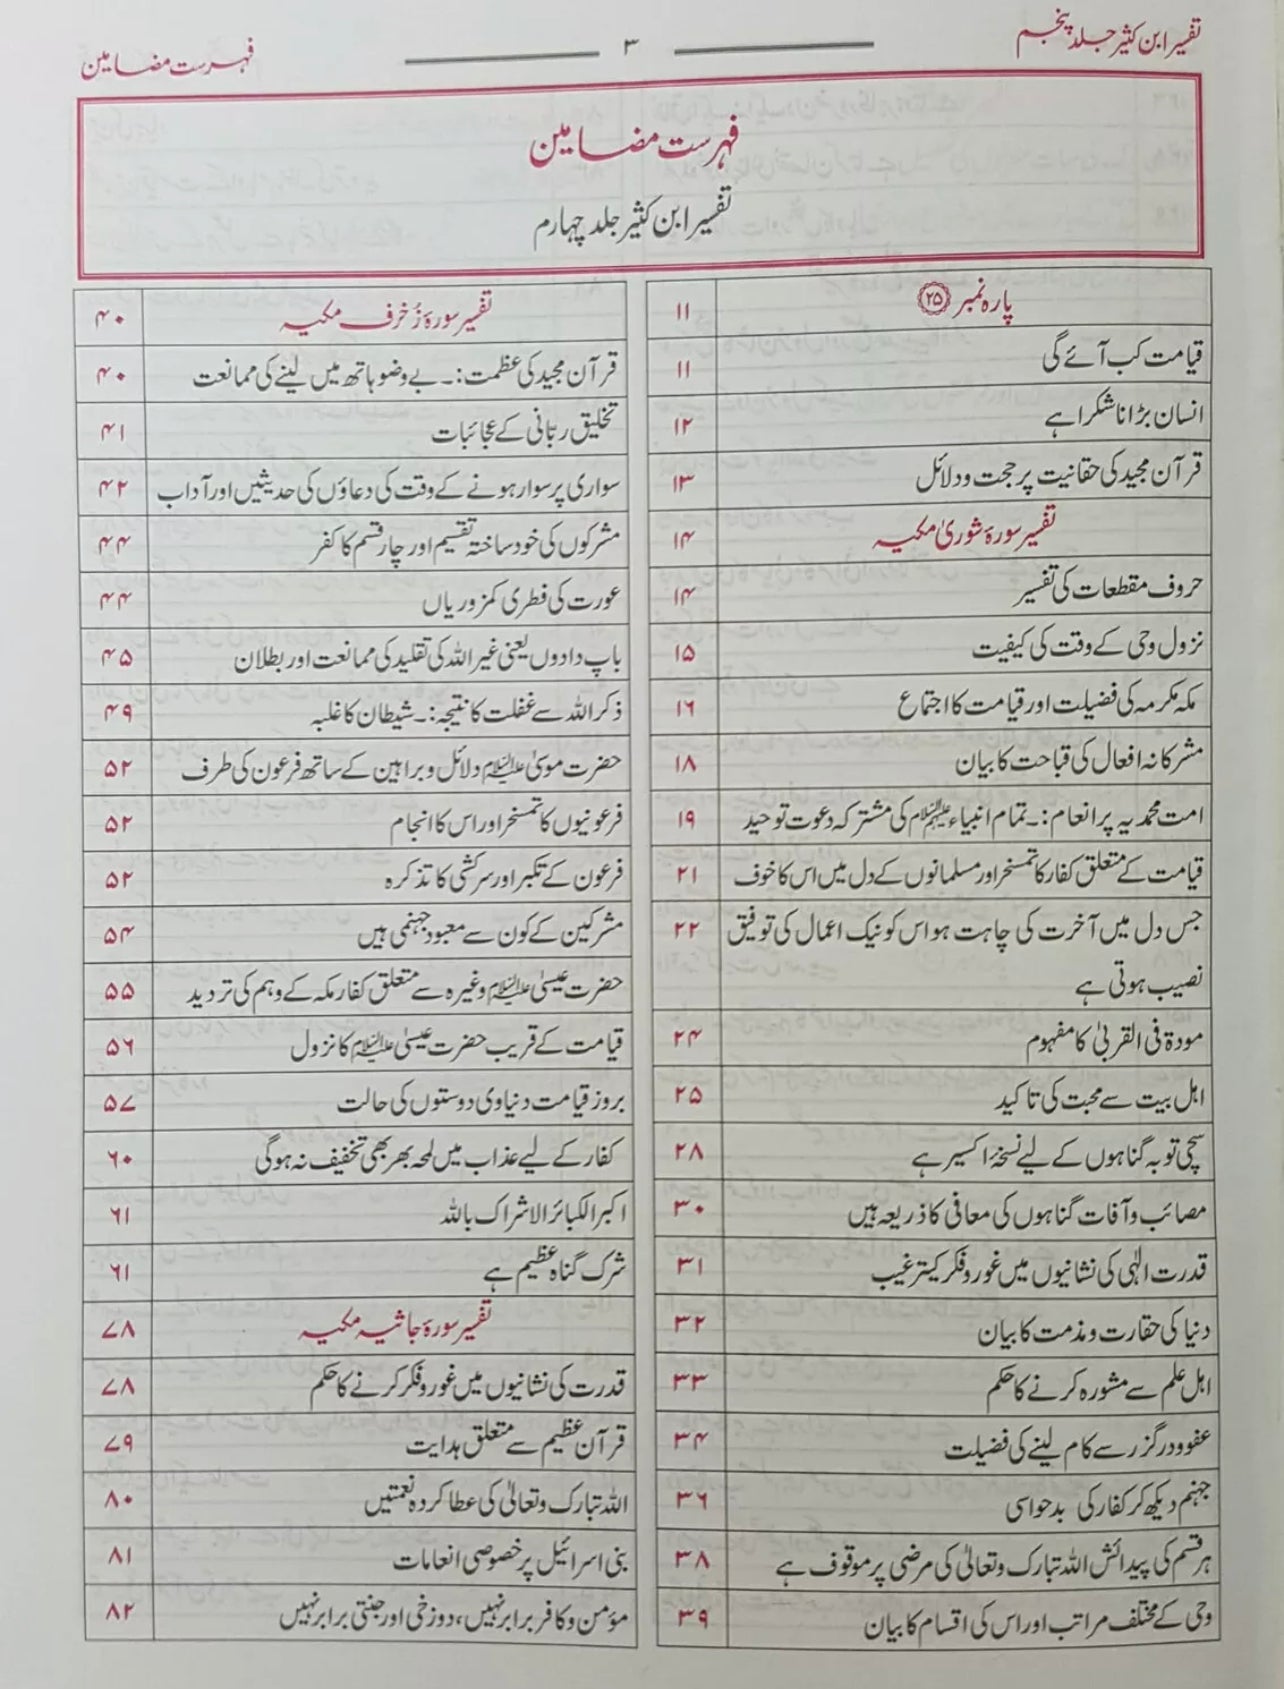 تفسیر ابن کثیر جلد پنجم
۳
فہرست مضامین
فہرست مضامین
تفسیر ابن کثیر جلد چہارم
پارہ نمبر ۲۵ ۱۱
قیامت کب آئے گی ۱۱
انسان بڑا ناشکرا ہے ۱۲
قرآن مجید کی حقانیت پر حجت و دلائل ۱۳
تفسیر سورۂ شوریٰ مکیہ ۱۴
حروف مقطعات کی تفسیر ۱۴
نزول وحی کے وقت کی کیفیت ۱۵
مکہ مکرمہ کی فضیلت اور قیامت کا اجتماع ۱۶
مشرکانہ افعال کی قباحت کا بیان ۱۸
امت محمدیہ پر انعام:۔ تمام انبیاء علیہم السلام کی مشترکہ دعوت توحید ۱۹
قیامت کے متعلق کفار کا تمسخر اور مسلمانوں کے دل میں اس کا خوف ۲۱
جس دل میں آخرت کی چاہت ہو اس کو نیک اعمال کی توفیق ۲۲
نصیب ہوتی ہے
مودۃ فی القربیٰ کا مفہوم ۲۴
اہل بیت سے محبت کی تاکید ۲۵
سچی توبہ گناہوں کے لیے نسخۂ اکسیر ہے ۲۸
مصائب و آفات گناہوں کی معافی کا ذریعہ ہیں ۳۰
قدرت الٰہی کی نشانیوں میں غور و فکر کیترغیب ۳۱
دنیا کی حقارت و مذمت کا بیان ۳۲
اہل علم سے مشورہ کرنے کا حکم ۳۳
عفو و درگزر سے کام لینے کی فضیلت ۳۴
جہنم دیکھ کر کفار کی بدحواسی ۳۶
ہر قسم کی پیدائش اللہ تبارک و تعالیٰ کی مرضی پر موقوف ہے ۳۸
وحی کے مختلف مراتب اور اس کی اقسام کا بیان ۳۹
تفسیر سورۂ زُخرف مکیہ ۴۰
قرآن مجید کی عظمت:۔ بے وضو ہاتھ میں لینے کی ممانعت ۴۰
تخلیق ربّانی کے عجائبات ۴۱
سواری پر سوار ہونے کے وقت کی دعاؤں کی حدیثیں اور آداب ۴۲
مشرکوں کی خود ساختہ تقسیم اور چار قسم کا کفر ۴۴
عورت کی فطری کمزوریاں ۴۴
باپ دادوں یعنی غیر اللہ کی تقلید کی ممانعت اور بطلان ۴۵
ذکر اللہ سے غفلت کا نتیجہ:۔ شیطان کا غلبہ ۴۹
حضرت موسیٰ علیہ السلام دلائل و براہین کے ساتھ فرعون کی طرف ۵۲
فرعونیوں کا تمسخر اور اس کا انجام ۵۲
فرعون کے تکبر اور سرکشی کا تذکرہ ۵۲
مشرکین کے کون سے معبود جہنمی ہیں ۵۴
حضرت عیسیٰ علیہ السلام وغیرہ سے متعلق کفار مکہ کے وہم کی تردید ۵۵
قیامت کے قریب حضرت عیسیٰ علیہ السلام کا نزول ۵۶
بروز قیامت دنیاوی دوستوں کی حالت ۵۷
کفار کے لیے عذاب میں لمحہ بھر بھی تخفیف نہ ہوگی ۶۰
اکبر الکبائر الاشراک باللہ ۶۱
شرک گناہ عظیم ہے ۶۱
تفسیر سورۂ جاثیہ مکیہ ۷۸
قدرت کی نشانیوں میں غور و فکر کرنے کا حکم ۷۸
قرآن عظیم سے متعلق ہدایت ۷۹
اللہ تبارک و تعالیٰ کی عطا کردہ نعمتیں ۸۰
بنی اسرائیل پر خصوصی انعامات ۸۱
مؤمن و کافر برابر نہیں، دوزخی اور جنتی برابر نہیں ۸۲